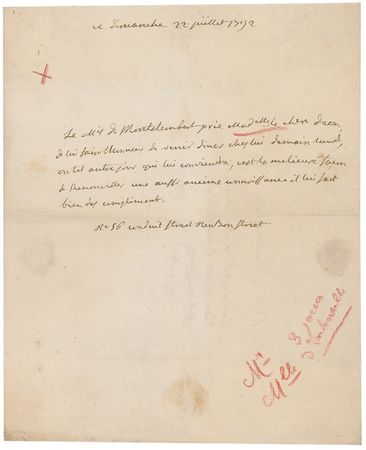 ce dimanche 22 juillet 1792
Le Mis de Montalembert prie Mademelle le Chev d'eon,
de lui faire l'honneur de venir diner chez lui demain lundi,
ou tel autre jour qui lui conviendra, c'est la meilieure façon
de Renouveller une aussi ancienne connoissance il lui fait
bien des compliment.
No 56 conduit Street New Bon Street
Mis
Mlle